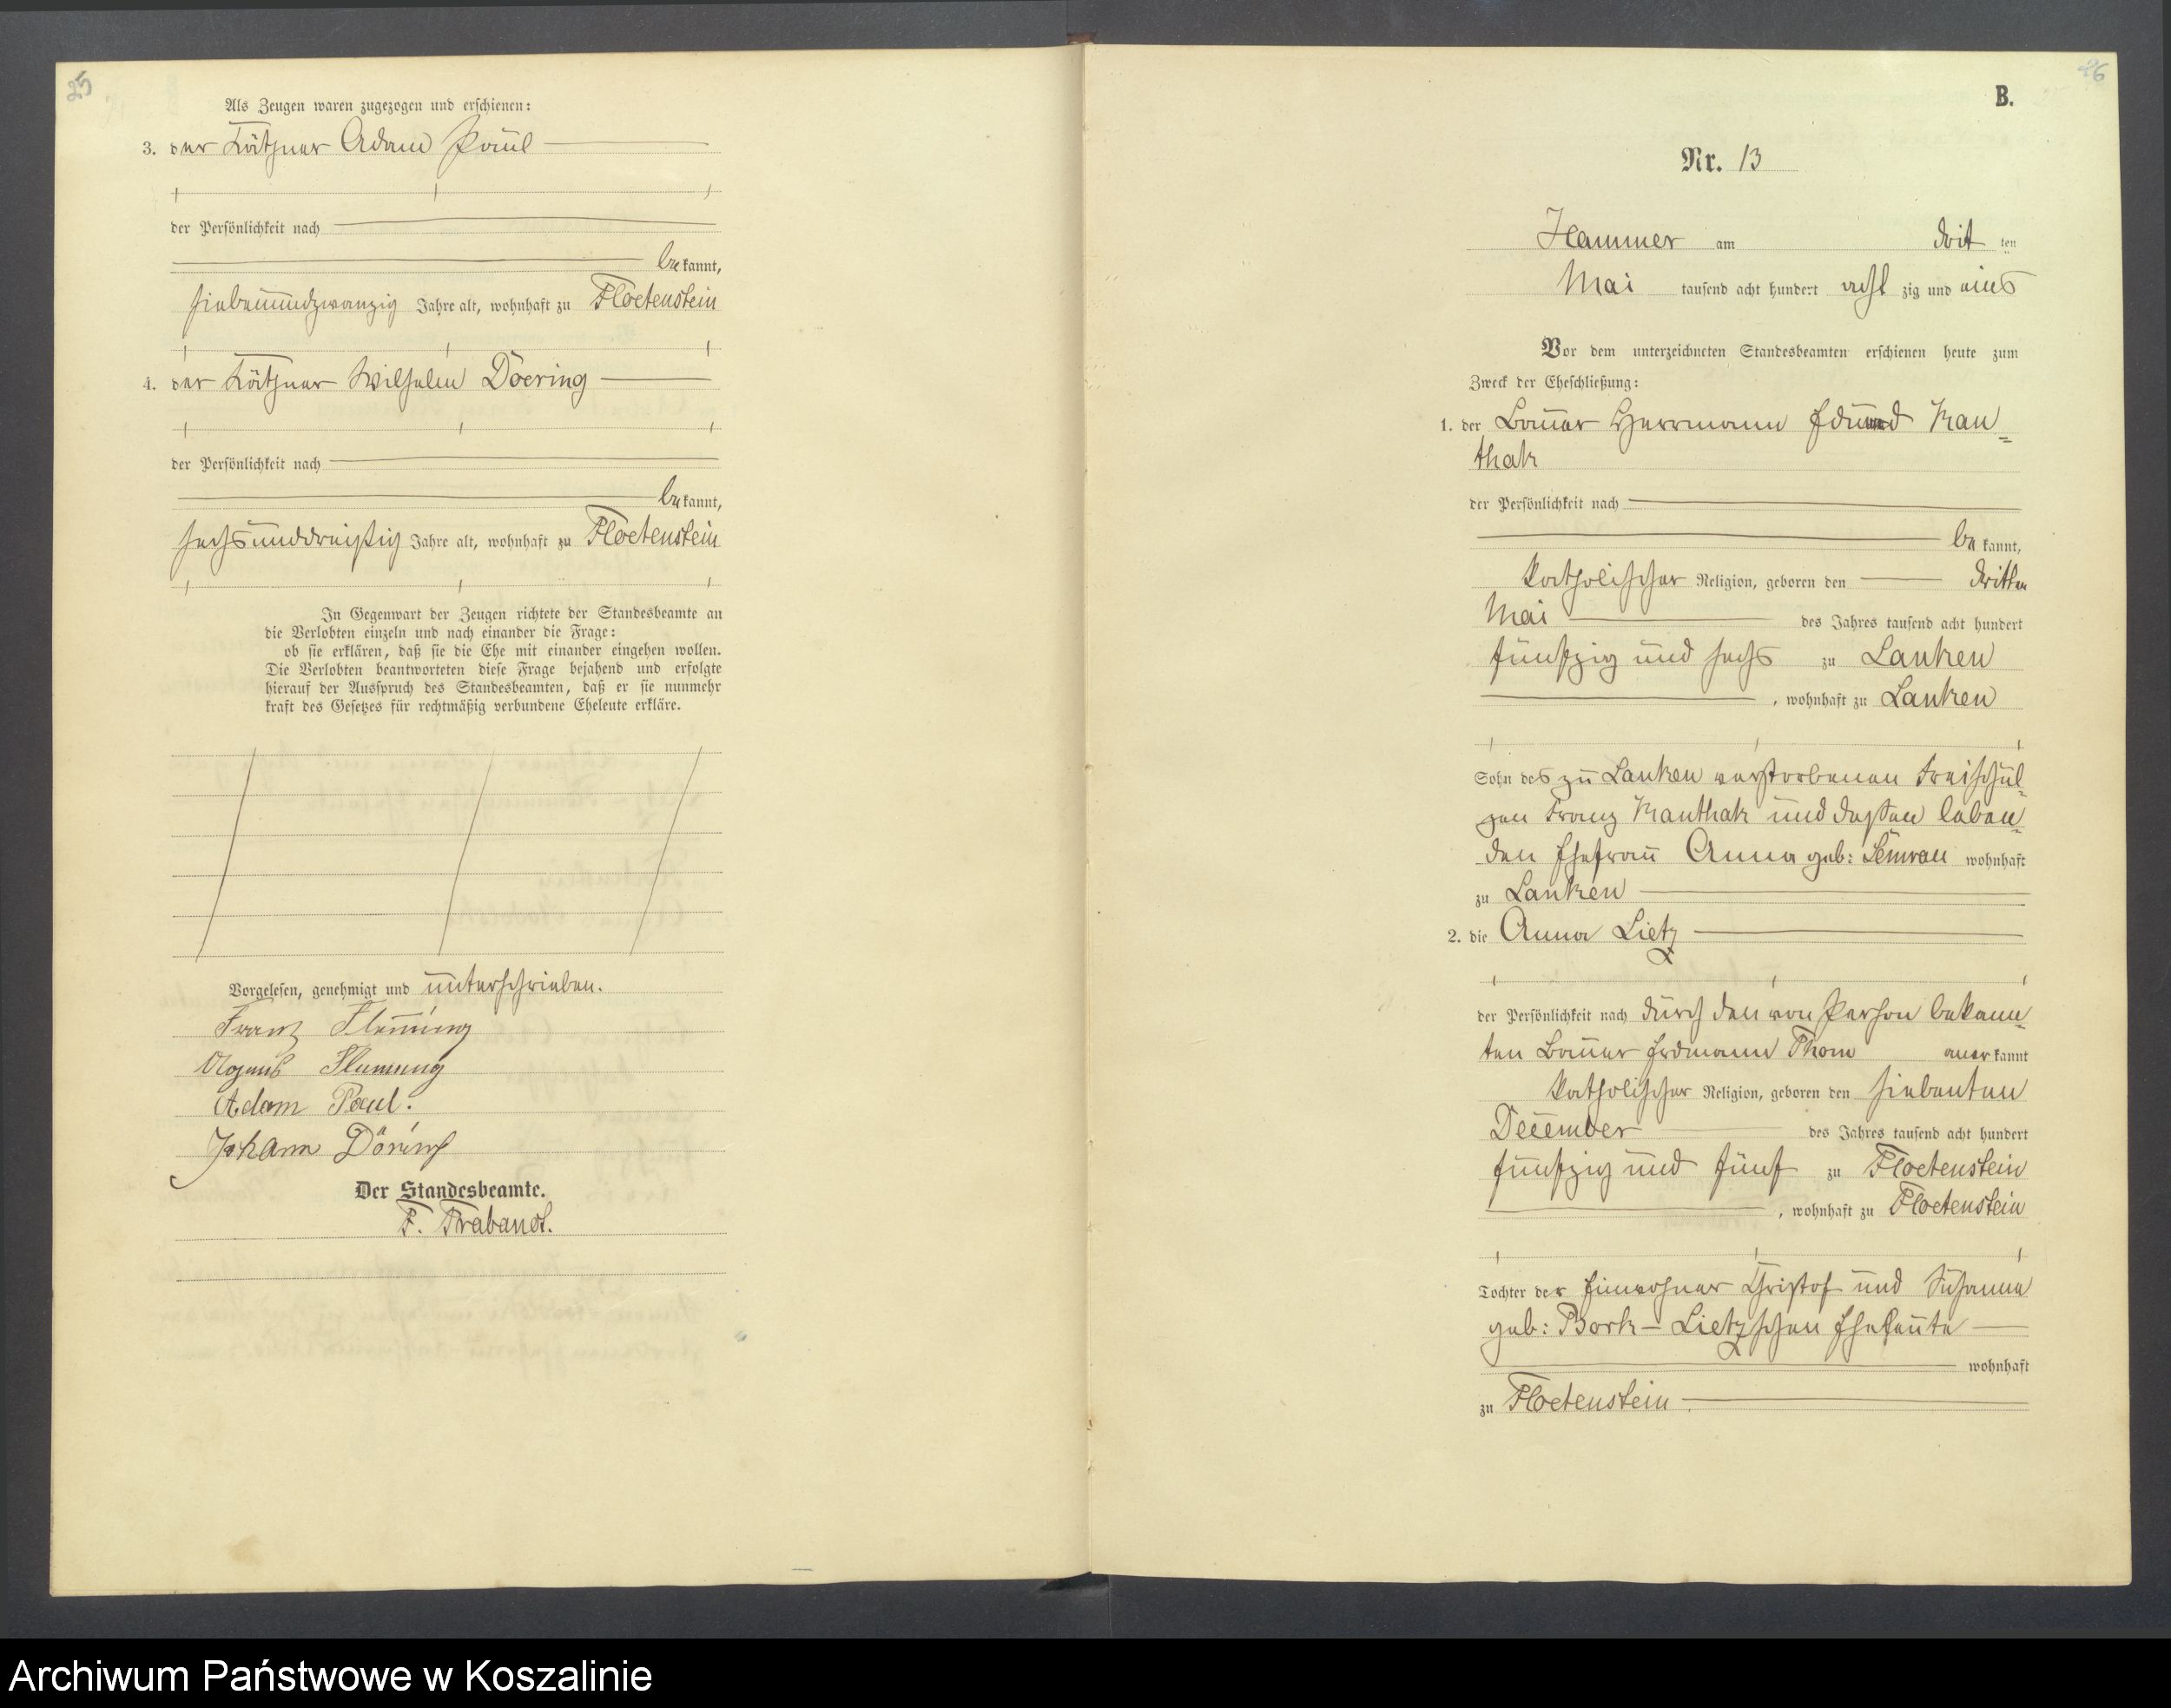 25
Als Zeugen waren zugezogen und erschienen:
3. der Käthner Adam Paul
der Persönlichkeit nach
bekannt,
siebenundzwanzig Jahre alt, wohnhaft zu Floetenstein
4. der Käthner Wilhelm Doering
der Persönlichkeit nach
bekannt,
sechsunddreißig Jahre alt, wohnhaft zu Floetenstein
In Gegenwart der Zeugen richtete der Standesbeamte an
die Verlobten einzeln und nach einander die Frage:
ob sie erklären, daß sie die Ehe mit einander eingehen wollen.
Die Verlobten beantworteten diese Frage bejahend und erfolgte
hierauf der Ausspruch des Standesbeamten, daß er sie nunmehr
kraft des Gesetzes für rechtmäßig verbundene Eheleute erkläre.
Vorgelesen, genehmigt und unterschrieben.
Franz Flemming
Flemming
Adam Paul.
Johann Döring
Der Standesbeamte.
F. Trabandt.
26
B.
Nr. 13
Hammer am drit ten
Mai tausend acht hundert acht zig und eins
Vor dem unterzeichneten Standesbeamten erschienen heute zum
Zweck der Eheschließung:
1. der Bauer Herrmann Eduard Man=
thak
der Persönlichkeit nach
be kannt,
katholischer Religion, geboren den dritten
Mai des Jahres tausend acht hundert
fünfzig und sechs zu Lanken
, wohnhaft zu Lanken
Sohn des zu Lanken verstorbenen Freischul=
zen Franz Manthak und deßen leben=
den Ehefrau Anna geb: Semrau wohnhaft
zu Lanken
2. die Anna Lietz
der Persönlichkeit nach durch den von Person bekann=
ten Bauer Erdmann Thom aner kannt
katholischer Religion, geboren den siebenten
December des Jahres tausend acht hundert
fünfzig und fünf zu Floetenstein
, wohnhaft zu Floetenstein
Tochter der Einwohner Christof und Susanna
geb: Bork - Lietzschen Eheleute
wohnhaft
zu Floetenstein
Archiwum Państwowe w Koszalinie